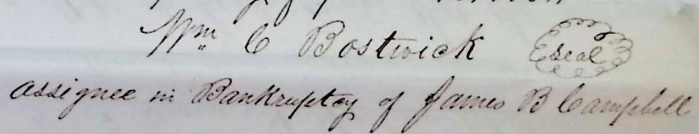 Wm C Bostwick (seal)
assignee in Bankruptcy of James B Campbell